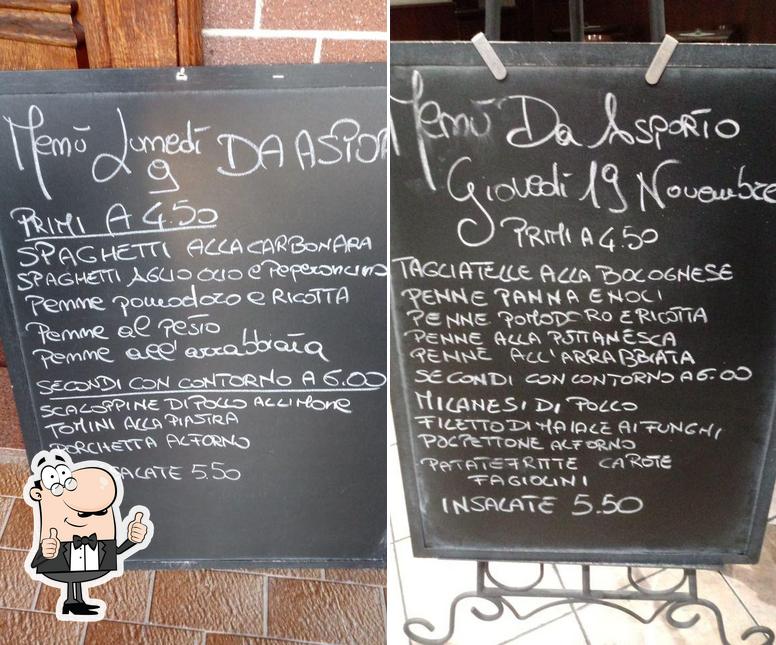 Menù Lunedì DA ASPOR
9
PRIMI A 4.50
SPAGHETTI ALLA CARBONARA
SPAGHETTI AGLIO OLIO e Peperoncino
Penne pomodoro e RICOTTA
Penne al pesto
Penne all'arrabbiata
SECONDI CON CONTORNO A 6.00
SCALOPPINE DI POLLO AL LIMONE
TOMINI ALLA PIASTRA
PORCHETTA AL FORNO
SALATE 5.50
Menù Da Asporto
Giovedì 19 Novembre
PRIMI A 4.50
TAGLIATELLE ALLA BOLOGNESE
PENNE PANNA E NOCI
PENNE POMODORO E RICOTTA
PENNE ALLA PUTTANESCA
PENNE ALL'ARRABBIATA
SECONDI CON CONTORNO A 6.00
MILANESI DI POLLO
FILETTO DI MAIALE AI FUNGHI
POLPETTONE AL FORNO
PATATE FRITTE CAROTE
FAGIOLINI
INSALATE 5.50